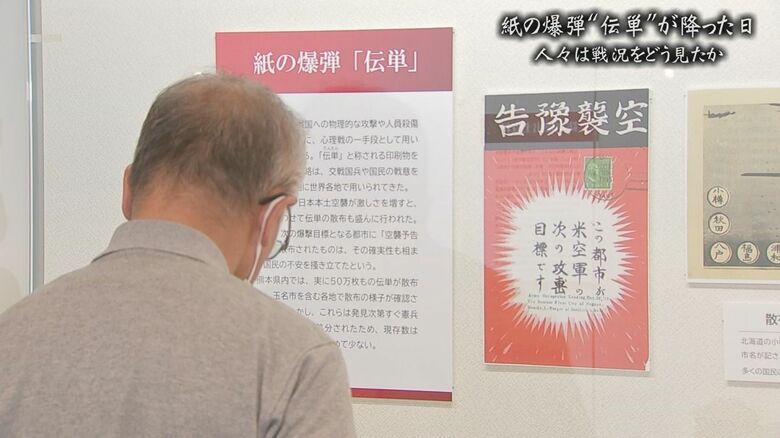 紙の爆弾“伝単”が降った日
人々は戦況をどう見たか
紙の爆弾「伝単」
国への物理的な攻撃や人員殺傷
に、心理戦の一手段として用い
「伝単」と称される印刷物を
は、交戦国兵や国民の戦意を
に世界各地で用いられてきた。
日本本土空襲が激しさを増すと、
せて伝単の散布も盛んに行われた。
次の爆撃目標となる都市に「空襲予告
散布されたものは、その確実性も相ま
国民の不安を掻き立てたという。
熊本県内では、実に50万枚もの伝単が散布
玉名市を含む各地で散布の様子が確認さ
かし、これらは発見次第すぐ憲兵
処分されたため、現存数は
めて少ない。
告豫襲空
この都市が
米空軍の
次の攻撃
目標です
小樽
秋田
八戸
福島
浦和
散布
北海道の小
市名が記さ
多くの国民に